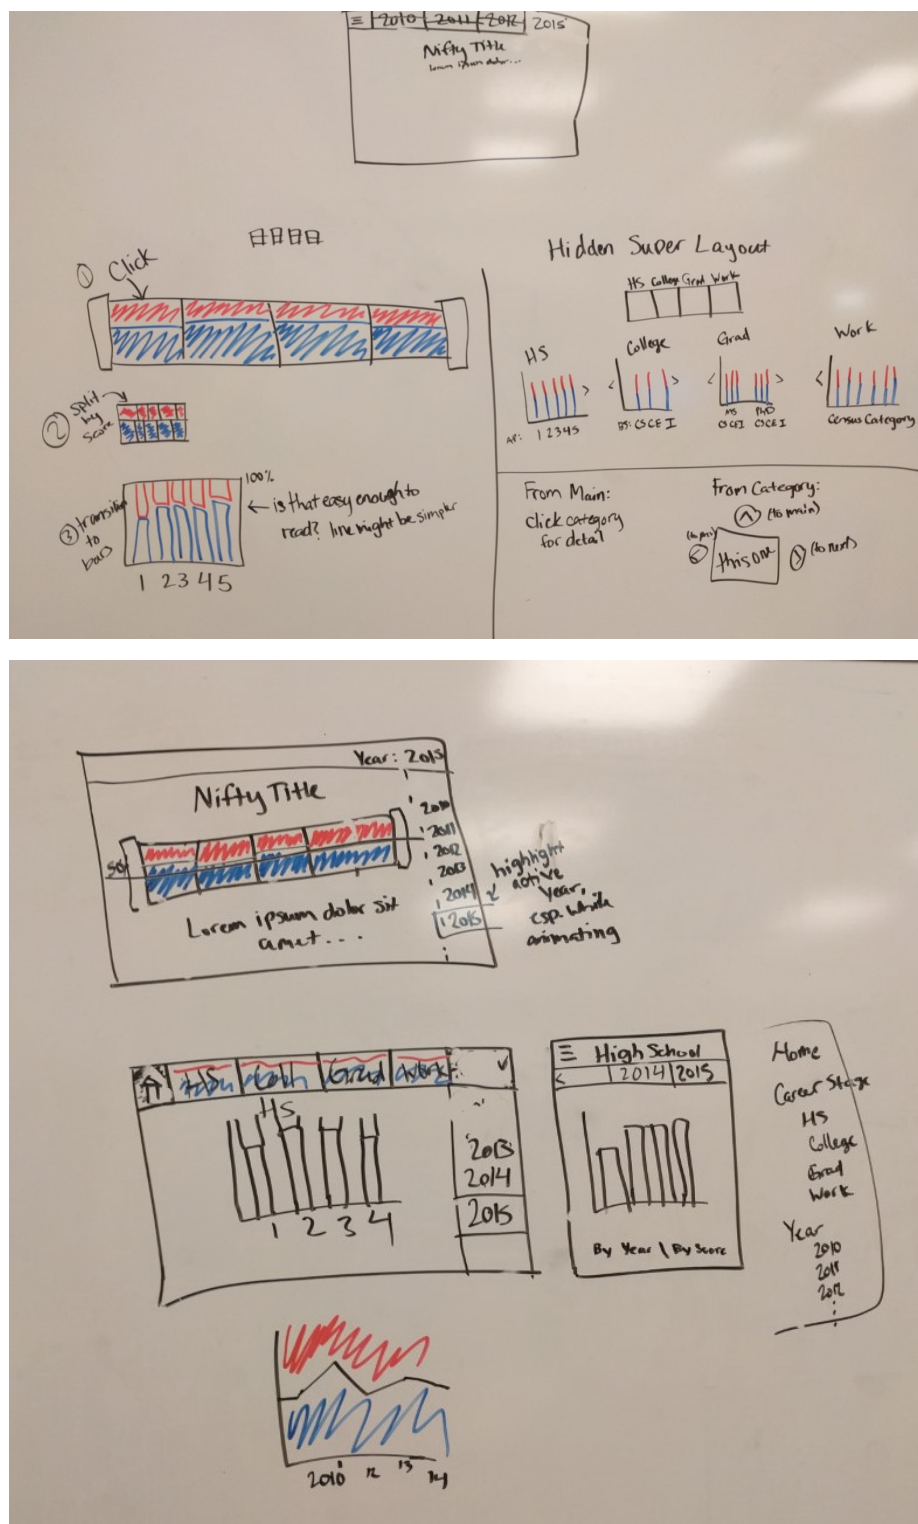 2010 2011 2012 2015
Nifty Title
Lorem ipsum dolor...
① Click
② Split
by
Score
③ transition
to
bars
100%
← is that easy enough to
read? line might be simpler
1 2 3 4 5
Hidden Super Layout
HS College Grad Work
HS
College
Grad
Work
AP: 1 2 3 4 5
BS: CS CE I
MS PhD
CS CE I CS CE I
Census Category
From Main:
click category
for detail
From Category:
(to main)
this one
(to next)
Year: 2015
Nifty Title
2010
2011
2012
2013
2014
2015
50
Lorem ipsum dolor sit
amet...
highlight
active
year,
esp. while
animating
HS Coll Grad Work
HS
1 2 3 4
2013
2014
2015
High School
< 2014 2015
By Year \ By Score
Home
Career Stage
HS
College
Grad
Work
Year
2010
2011
2012
2010 12 13 14